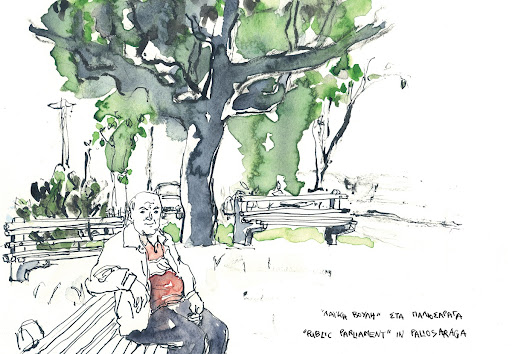 "ΛΑΪΚΗ ΒΟΥΛΗ" ΣΤΑ ΠΑΛΙΟΣΑΡΑΓΑ
"PUBLIC PARLIAMENT" IN PALIOSARAGA